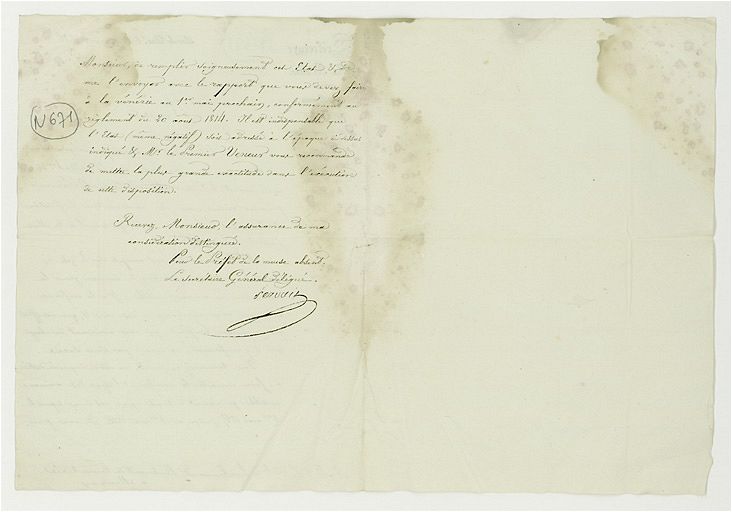 Monsieur, de remplir soigneusement cet Etat & de
me l'envoyer avec le rapport que vous devez faire
à la vénérie au 1er mai prochain, conformément au
règlement du 20 août 1814. Il est indispensable que
l'Etat (même négatif) soit adressé à l'époque ci-dessus
indiquée & Mr. le Premier Veneur vous recommande
de mettre la plus grande exactitude dans l'exécution
de cette disposition.
N 671
Recevez, Monsieur, l'assurance de ma
considération distinguée.
Pour le Préfet de la meuse absent,
Le secrétaire Général délégué.